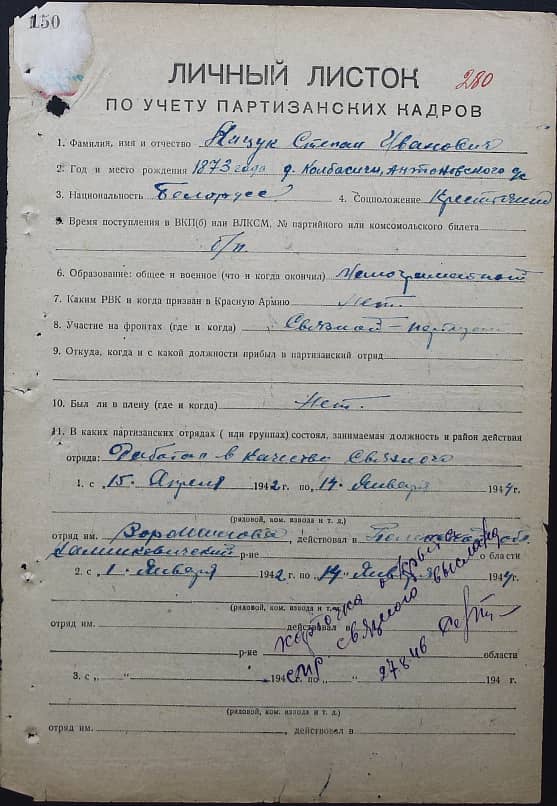 150
280
ЛИЧНЫЙ ЛИСТОК
ПО УЧЕТУ ПАРТИЗАНСКИХ КАДРОВ
1. Фамилия, имя и отчество Степан Иванович
2. Год и место рождения 1873 года д. Колбасичи, Антоновского
3. Национальность Белорусс 4. Соцположение Крестьянин
5. Время поступления в ВКП(б) или ВЛКСМ, № партийного или комсомольского билета
б/п.
6. Образование: общее и военное (что и когда окончил)
7. Каким РВК и когда призван в Красную Армию Нет.
8. Участие на фронтах (где и когда) Связной –
9. Откуда, когда и с какой должности прибыл в партизанский отряд
10. Был ли в плену (где и когда) Нет.
11. В каких партизанских отрядах ( или группах) состоял, занимаемая должность и район действия
отряда: Работал в качестве Связного
1. с „ 15. Апреля 1942 г. по „ 14. Января 1944 г.
(рядовой, ком. взвода и т. д.)
отряд им. Ворошилова, действовал в Полесской обл.
р-не области
2. с „ 1 „ Января 1942 г. по „ 14 „ Января 1944 г.
(рядовой, ком. взвода и т. д.)
отряд им. действовал в
карточка открыта
р-не области
стр. связного выслана
27.8.46
3. с „ “ 194 г. по „ “ 194 г.
(рядовой, ком. взвода и т. д.)
отряд им. , действовал в